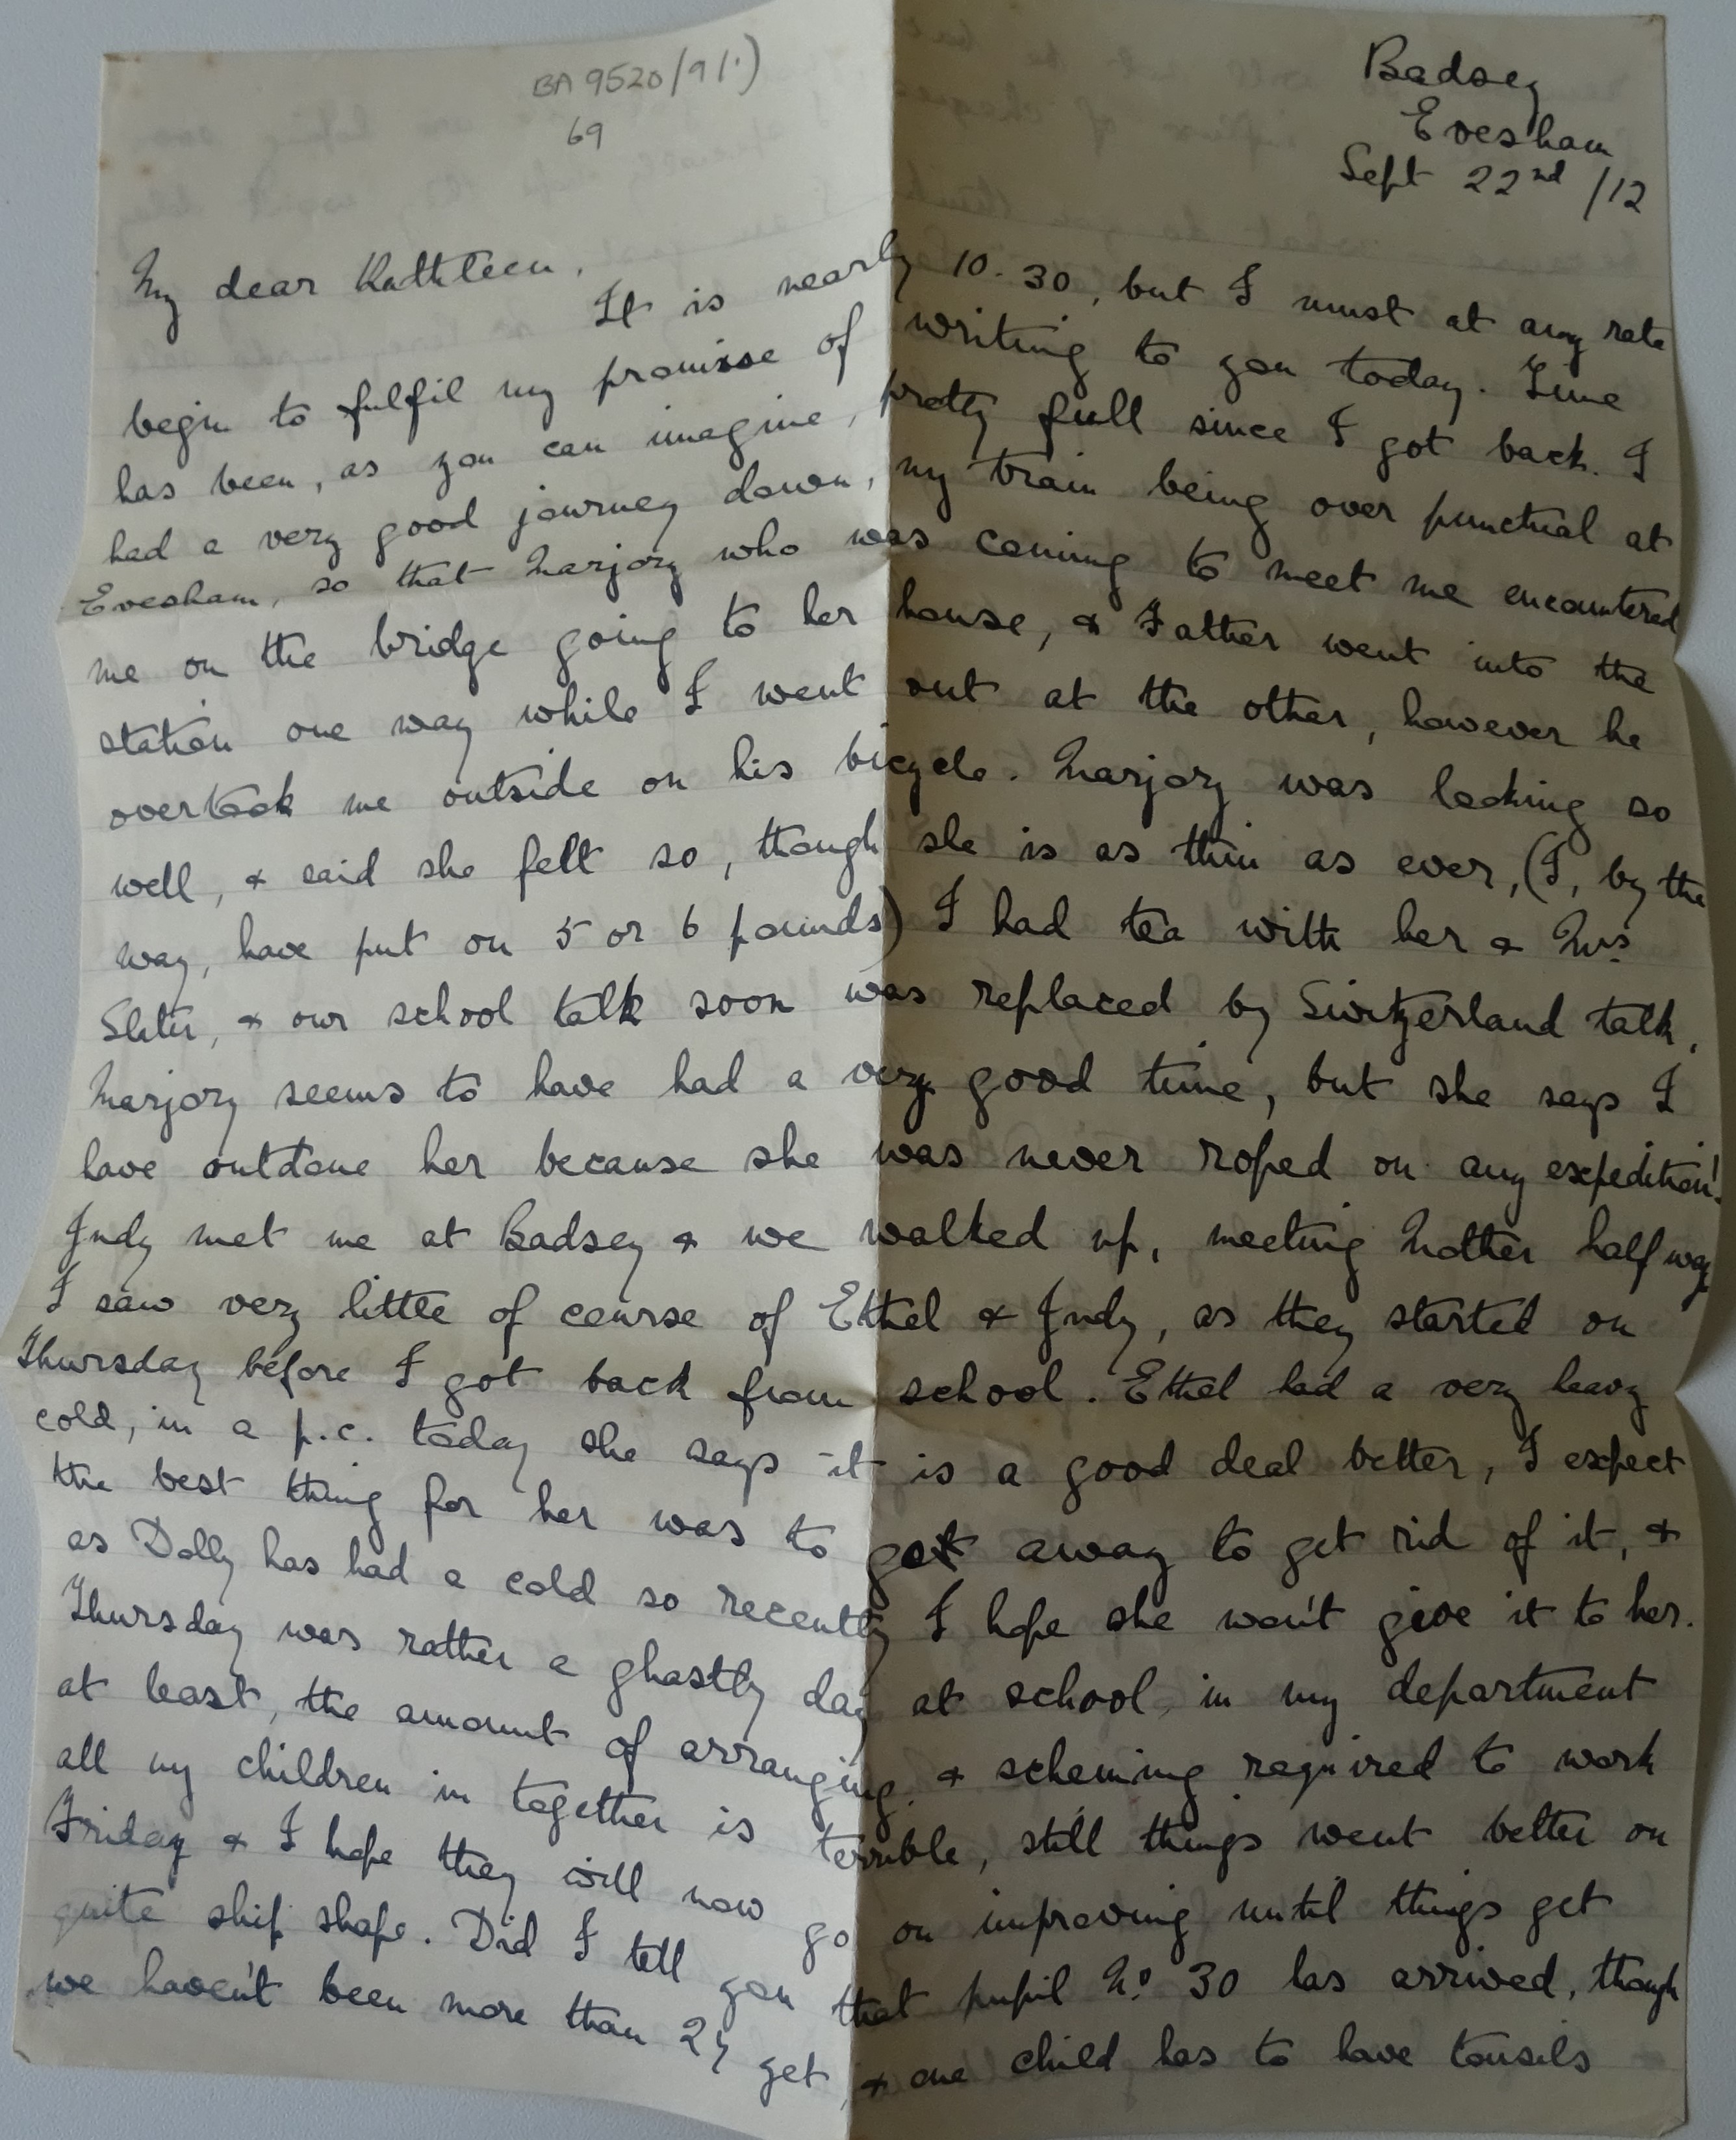 BA 9520/9(1)
69
Badsey
Evesham
Sept 22nd /12
My dear Kathleen,
It is nearly 10.30, but I must at any rate
begin to fulfil my promise of writing to you today. Time
has been, as you can imagine, pretty full since I got back. I
had a very good journey down, my train being over punctual at
Evesham, so that Marjory who was coming to meet me encountered
me on the bridge going to her house, & Father went into the
station one way while I went out at the other, however he
overtook me outside on his bicycle. Marjory was looking so
well, & said she felt so, though she is as thin as ever, (I, by the
way, have put on 5 or 6 pounds) I had tea with her & Mrs.
Slater, & our school talk soon was replaced by Switzerland talk.
Marjory seems to have had a very good time, but she says I
have outdone her because she was never roped on any expedition!
Judy met me at Badsey & we walked up, meeting Mother half way
I saw very little of course of Ethel & Judy, as they started on
Thursday before I got back from school. Ethel had a very heavy
cold, in a p.c. today she says it is a good deal better, I expect
the best thing for her was to get away to get rid of it, &
as Dolly has had a cold so recently I hope she won't give it to her.
Thursday was rather a ghastly day at school, in my department
at least, the amount of arranging & scheming required to work
all my children in together is terrible, still things went better on
Friday & I hope they will now go on improving until things get
quite ship shape. Did I tell you that pupil No. 30 has arrived, though
we haven't been more than yet, & one child has to have tonsils